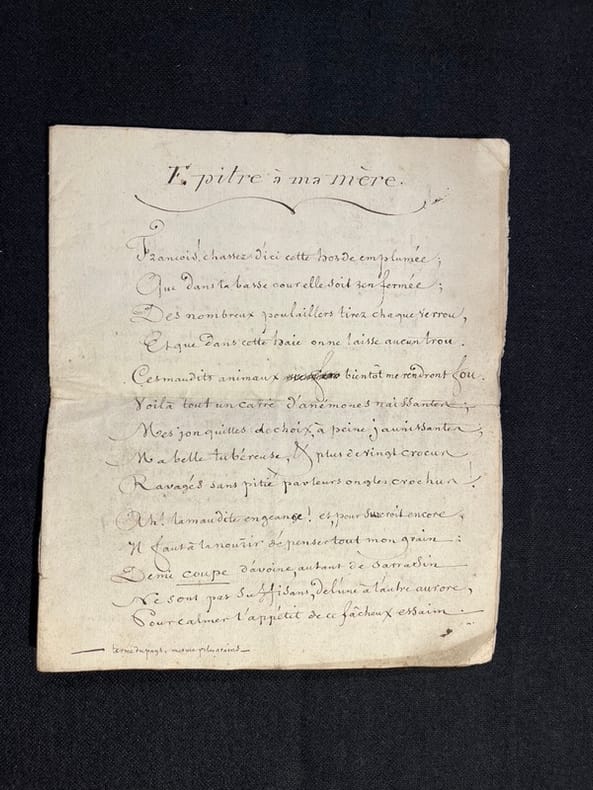 Epitre à ma mère.
François, chassez d'ici cette horde emplumée;
Que dans ta basse cour elle soit renfermée;
Des nombreux poulaillers tirez chaque verrou,
Et que dans cette haie on ne laisse aucun trou.
Ces maudits animaux bientôt me rendront fou.
Voilà tout un carré d'anémones naissantes;
Mes jonquilles de choix, à peine jaunissantes,
Ma belle tubéreuse, & plus de vingt crocus
Ravagés sans pitié par leurs ongles crochus!
Ah! la maudite engeance! et, pour surcroit encore,
Il faut à la nourrir dépenser tout mon grain:
Demi coupe d'avoine, autant de sarrasin
Ne sont pas suffisans, de l'une à l'autre aurore,
Pour calmer l'appétit de ce fâcheux essaim.
terme du pays, mesure